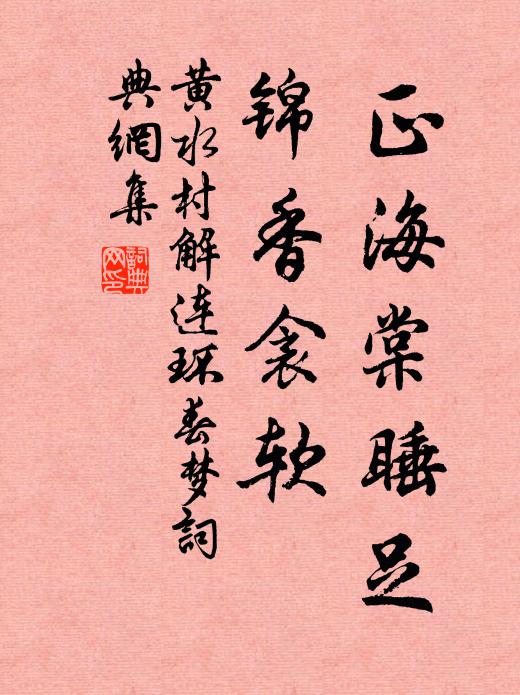 正海棠睡足
锦香衾软
黄水村解连环春梦词
典網集
詞典網印